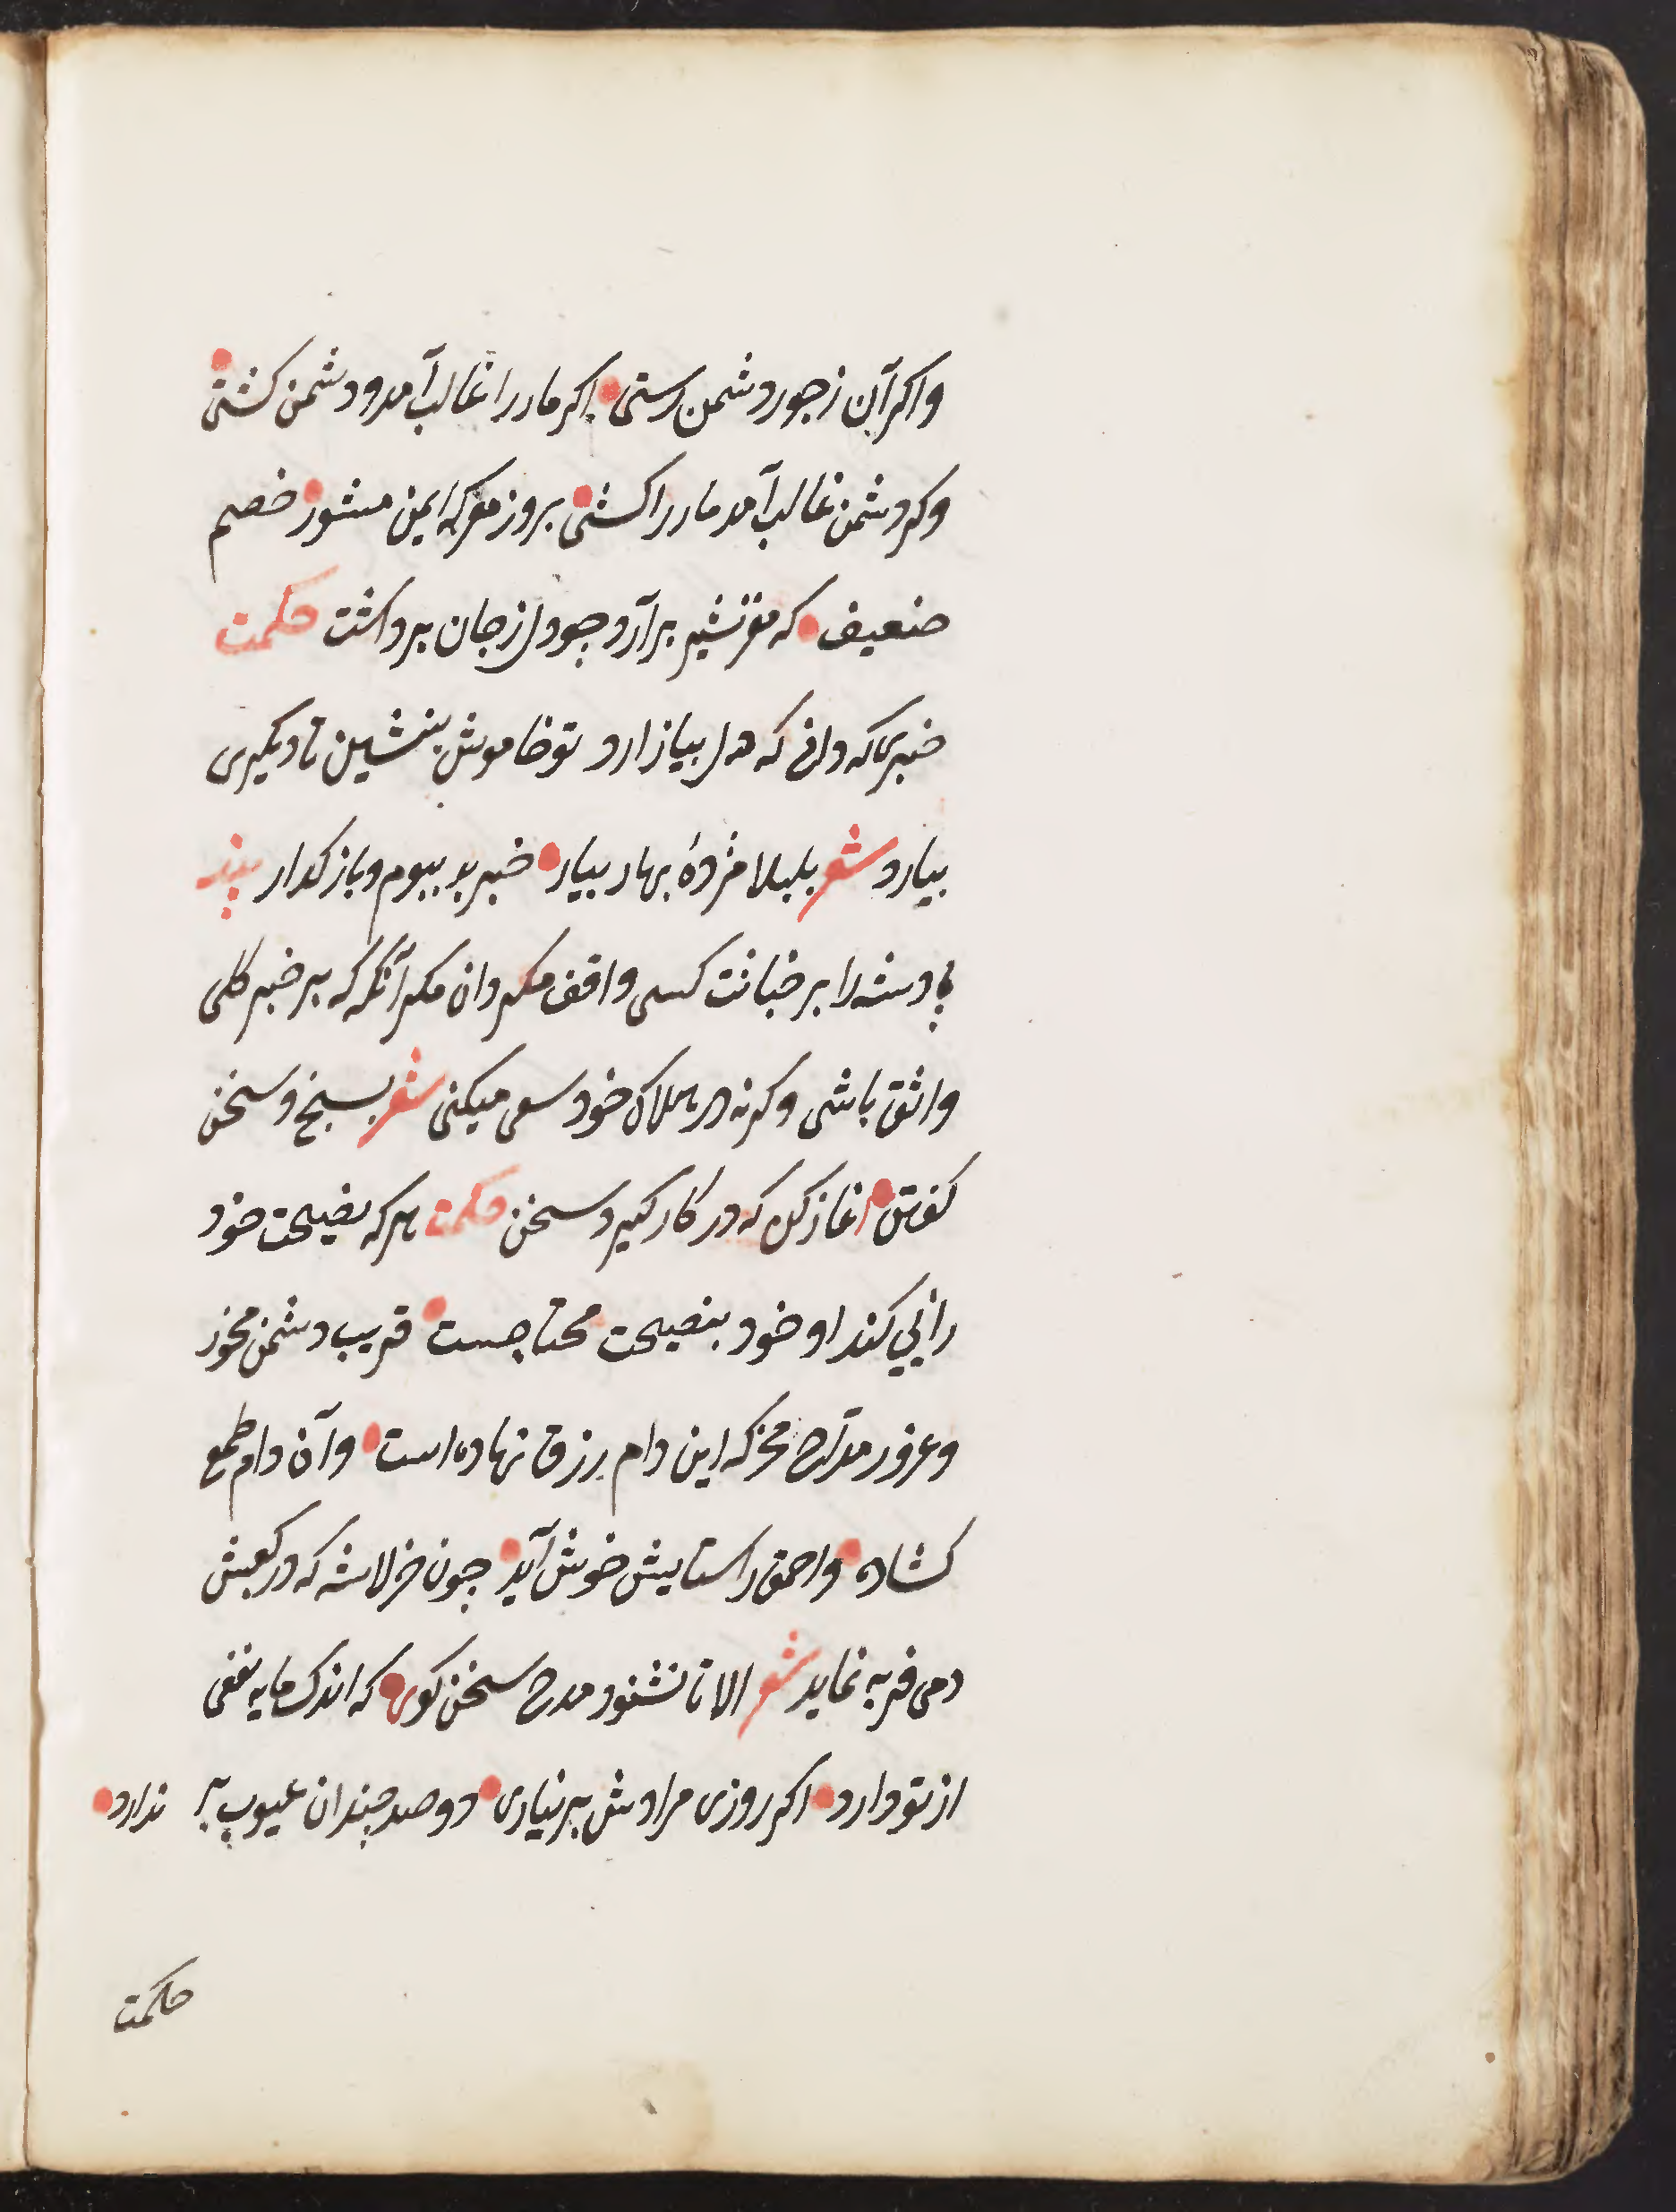 واکر آن زجور دشمن رستی اکر مار را غالب آمد و دشمن کشتی
وکر دشمن غالب آمد مار را کشتی بروز معرکه ایمن مشو ز خصم
ضعیف که مغز شیر برآرد چو دل ز جان برداشت حکمت
خبری که دانی که دل بیازارد تو خاموش بنشین تا دیکری
بیارد شعر بلبلا مژدهٔ بهار بیار خبر بد ببوم و باز کدار پند
پادشه را بر خیانت کسی واقف مکردان مکر آنکه که بر خبر کلی
واثق باشی وکرنه در هلاک خود سعی میکنی شعر بسیج و سخن
کفتن آغاز کن که در کار کیرد سخن حکمت هرکه نصیحت خود
رائی کند او خود بنصیحت محتاجست فریب دشمن مخور
وغرور مدّاح مخر که این دام رزق نهاده است وآن دام طمع
کشاده واحمق را ستایش خوش آید چون خر لاشه که در کعبش
دمی فربه نماید شعر الا تا نشنود مدح سخن کوی که اندک مایه نفعی
از تو دارد اکر روزی مرادش بر نیاری دو صد چندان عیوب بر ندارد
حکمت